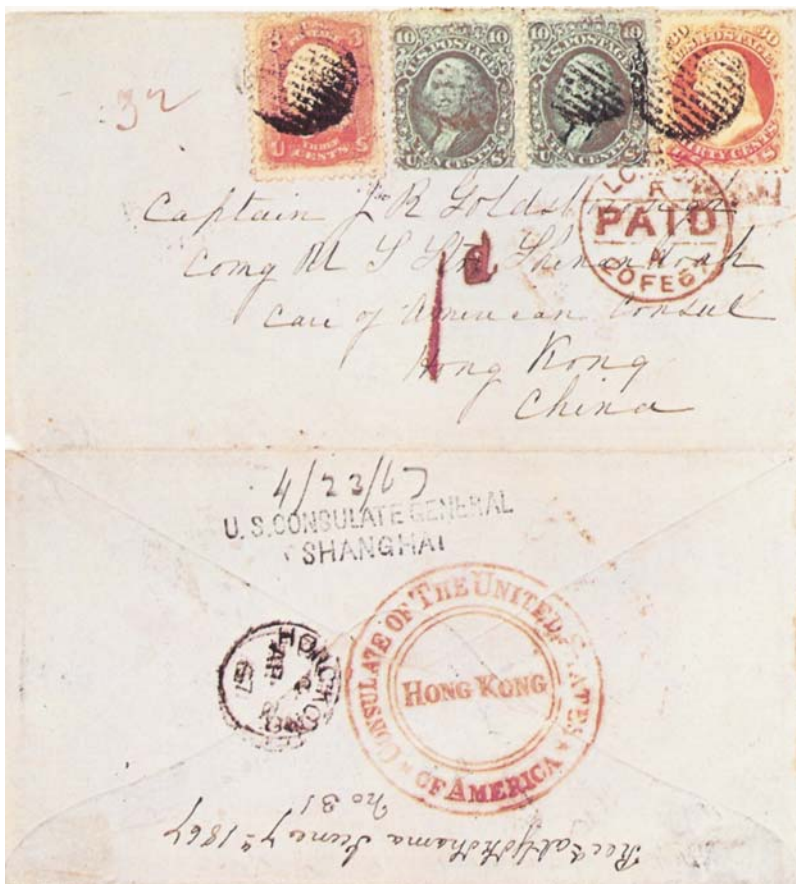 3 U.S. POSTAGE 3
U THREE CENTS S
10 U.S. POSTAGE 10
U TEN CENTS S
10 U.S. POSTAGE 10
U TEN CENTS S
30 U.S. POSTAGE 30
THIRTY CENTS
32
PAID
Captain J R Goldsborough
Comg U S Str Shenandoah
1d
Care of American Consul
Hong Kong
China
4/23/67
U. S. CONSULATE GENERAL
SHANGHAI
CONSULATE OF THE UNITED STATES
HONG KONG
OF AMERICA
HONG KONG
AP
67
No 31
Rec'd at Yokohama June 7th 1867